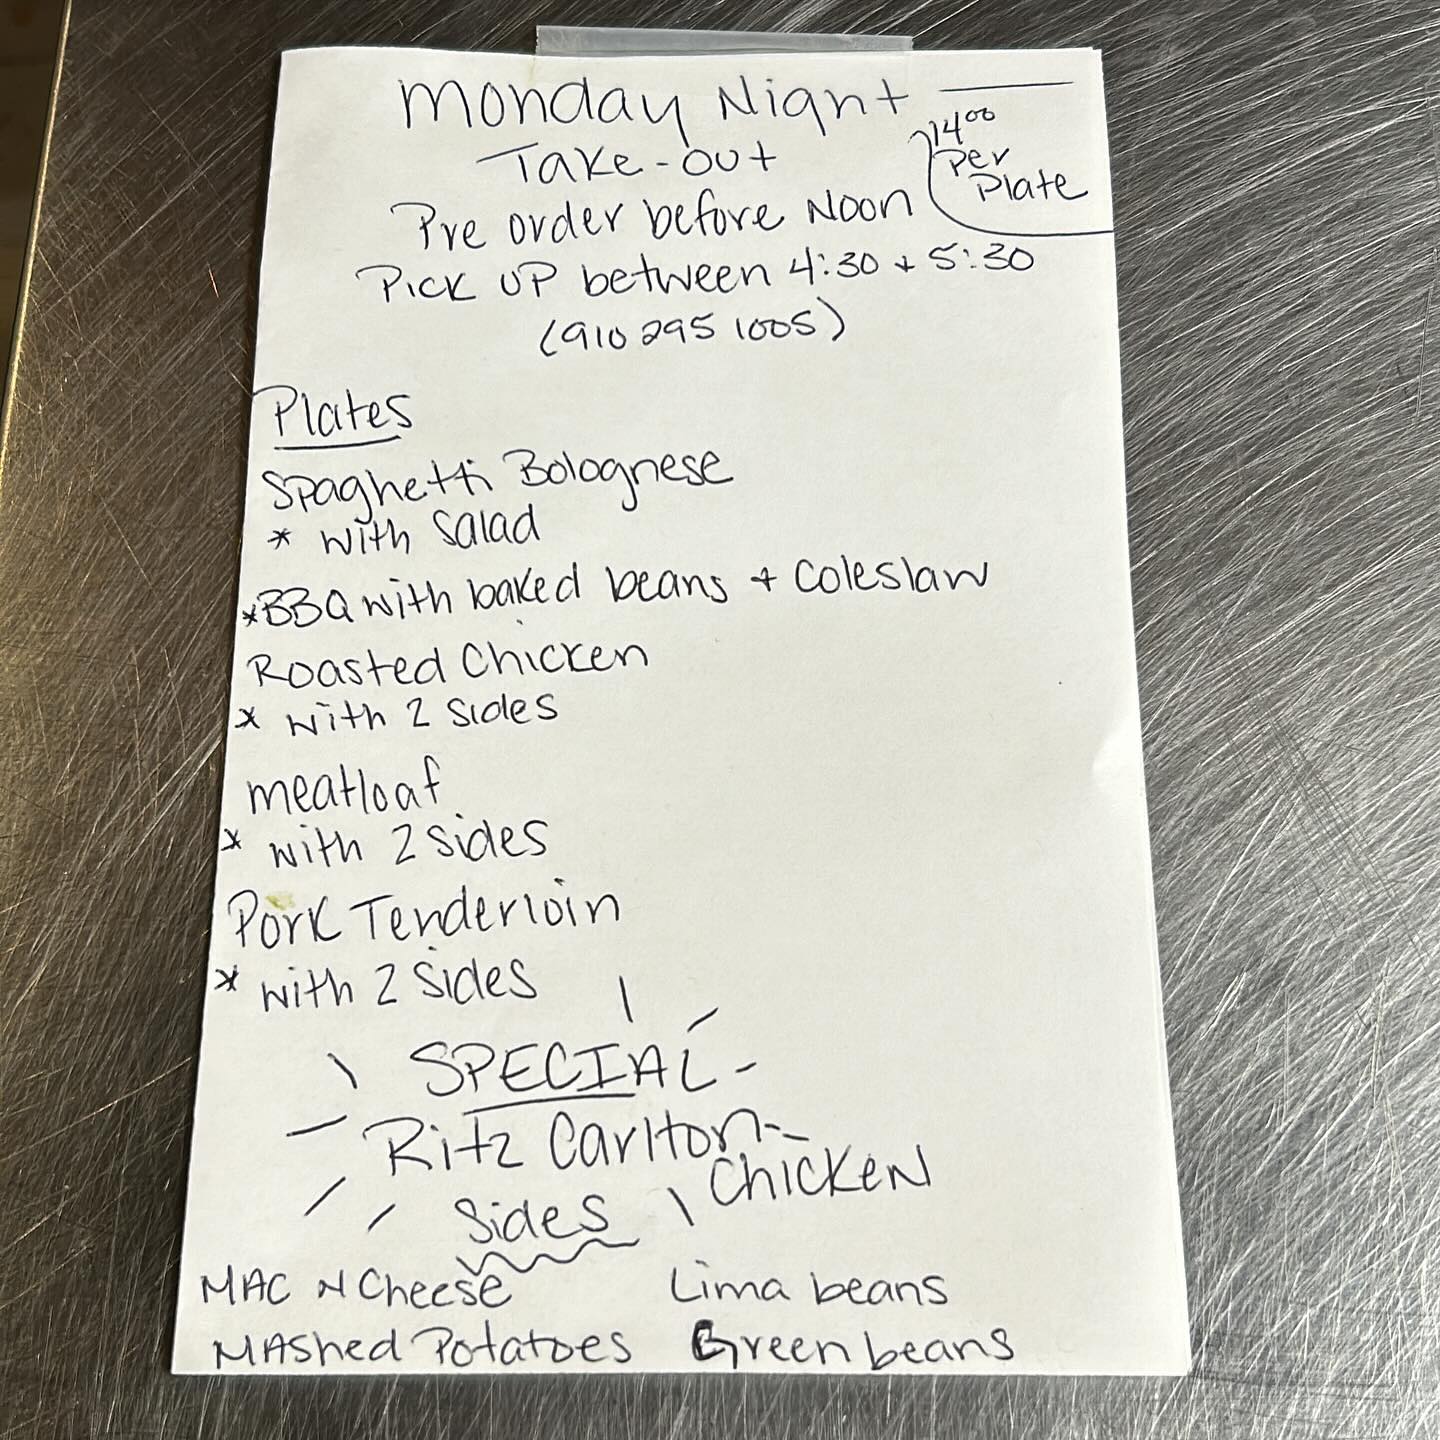 Monday Night
Take-out
14⁰⁰
Per
Plate
Pre order before Noon
Pick up between 4:30 + 5:30
(910 295 1005)
Plates
Spaghetti Bolognese
* with salad
*BBQ with baked beans + Coleslaw
Roasted Chicken
* with 2 sides
meatloaf
* with 2 sides
Pork Tenderloin
* with 2 sides
SPECIAL
Ritz Carlton
Chicken
Sides
MAC N Cheese
Lima beans
MAShed Potatoes
Green beans